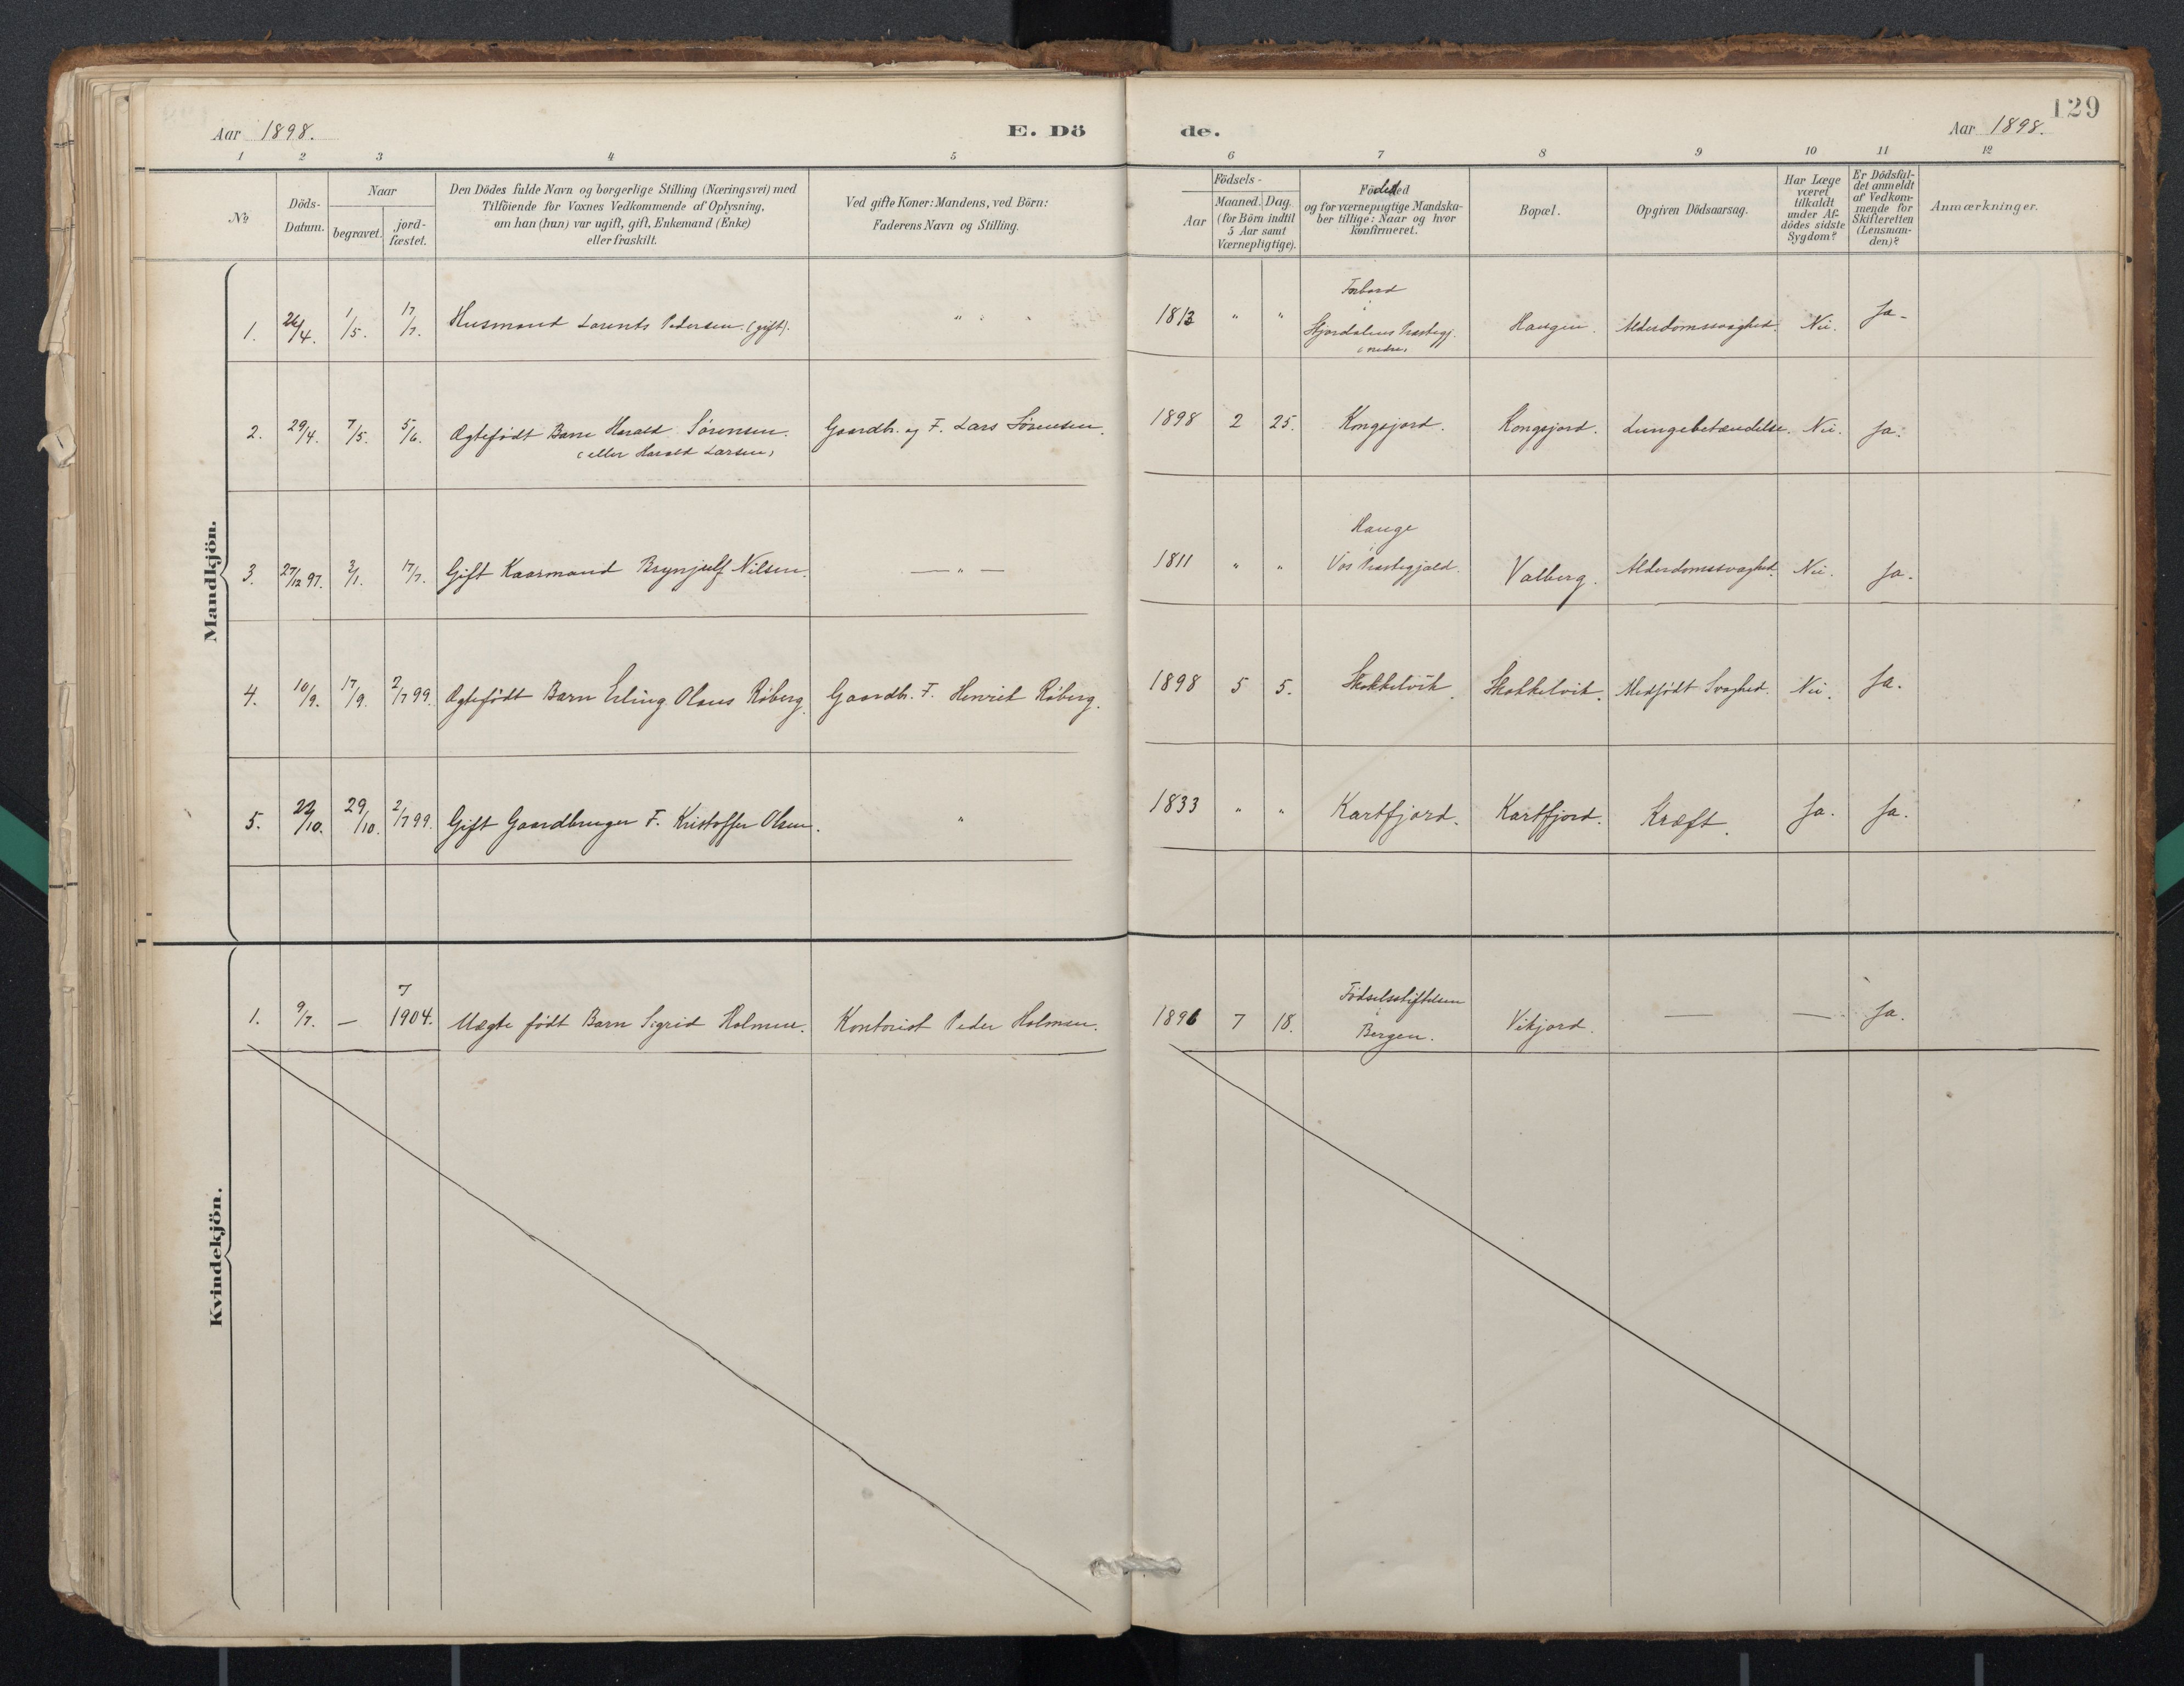 129
Aar 1898. E. Dö de. Aar 1898.
1 2 3 4 5 6 7 8 9 10 11 12
No
Döds-
Datum.
Naar
begravet.
jord-
fæstet.
Den Dödes fulde Navn og borgerlige Stilling (Næringsvei) med
Tilföiende for Voxnes Vedkommende af Oplysning,
om han (hun) var ugift, gift, Enkemand (Enke)
eller fraskilt.
Ved gifte Koner: Mandens, ved Börn:
Faderens Navn og Stilling.
Födsels-
Aar
Maaned. Dag.
(for Börn indtil
5 Aar samt
Værnepligtige).
Födested
og for værnepligtige Mandska-
ber tillige: Naar og hvor
konfirmeret.
Bopæl.
Opgiven Dödsaarsag.
Har Læge
været
tilkaldt
under Af-
dödes sidste
Sygdom?
Er Dödsfal-
det anmeldt
af Vedkom-
mende for
Skifteretten
(Lensman-
den)?
Anmærkninger.
Mandkjön.
Forbord
i
1. 26/4. 1/5. 17/7. Husmand Lorents Pedersen. (gift). " 1813 " " Stjordalens Præstegj. Haugen. Alderdomssvaghed. Nei. Ja.
(nedre)
2. 29/4. 7/5. 5/6. Ægtefödt Barn Harald Sörensen. Gaardb. og F. Lars Sörensen. 1898 2 25. Kongsjord. Kongsjord. Lungebetændelse. Nei. Ja.
(eller Harald Larsen)
Hauge
3. 27/12 97. 2/1. 17/7. Gift Kaarmand Brynjulf Nilsen. — " — 1811 " " Vos Præstegjæld. Valberg. Alderdomssvaghed. Nei. Ja.
4. 10/9. 17/9. 2/7 99. Ægtefödt Barn Erling Olaus Röberg. Gaardb. F. Henrik Röberg. 1898 5 5. Skokkelvik. Skokkelvik. Medfödt Svaghed. Nei. Ja.
5. 22/10. 29/10. 2/7 99. Gift Gaardbruger F. Kristoffer Olsen. " 1833 " " Kartfjord. Kartfjord. Kræft. Ja. Ja.
Kvindekjön.
7 Födselsstiftelsen
i
1. 9/7. — 1904. Uægte födt Barn Sigrid Holmen. Kontorist Peder Holmen. 1896 7 18. Bergen. Vikjord. — — Ja.